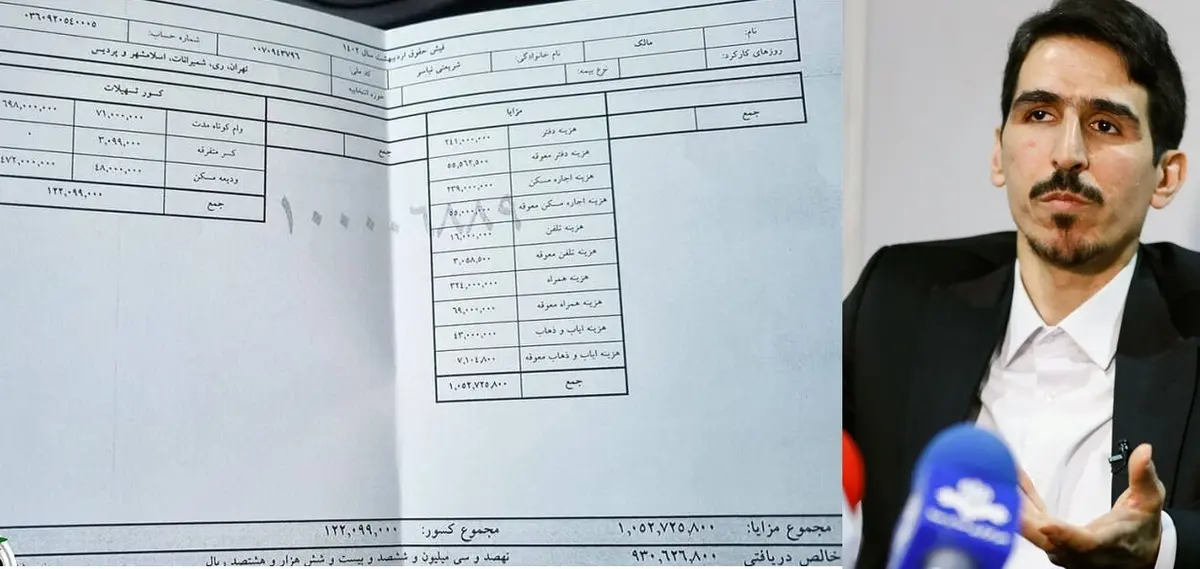 فیش حقوق اردیبهشت سال ۱۴۰۲
نام: مالک نام خانوادگی: شریعتی نیاسر کد ملی: ۰۰۷۰۹۴۳۷۹۶ شماره حساب: ۰۳۶۰۹۲۰۵۴۰۰۰۵
روزهای کارکرد: نوع بیمه: حوزه انتخابیه تهران، ری، شمیرانات، اسلامشهر و پردیس
مزایا
جمع
هزینه دفتر ۲۴۱,۰۰۰,۰۰۰
هزینه دفتر معوقه ۵۵,۵۶۲,۵۰۰
هزینه اجاره مسکن ۲۳۹,۰۰۰,۰۰۰
هزینه اجاره مسکن معوقه ۵۵,۰۰۰,۰۰۰
هزینه تلفن ۱۶,۰۰۰,۰۰۰
هزینه تلفن معوقه ۳,۰۵۸,۵۰۰
هزینه همراه ۳۲۴,۰۰۰,۰۰۰
هزینه همراه معوقه ۶۹,۰۰۰,۰۰۰
هزینه ایاب و ذهاب ۴۳,۰۰۰,۰۰۰
هزینه ایاب و ذهاب معوقه ۷,۱۰۴,۸۰۰
جمع ۱,۰۵۲,۷۲۵,۸۰۰
جمع
کسور تسهیلات
وام کوتاه مدت ۷۱,۰۰۰,۰۰۰ ۶۹۸,۰۰۰,۰۰۰
کسر متفرقه ۳,۰۹۹,۰۰۰ ۰
ودیعه مسکن ۴۸,۰۰۰,۰۰۰ ۴۷۲,۰۰۰,۰۰۰
جمع ۱۲۲,۰۹۹,۰۰۰
مجموع مزایا: ۱,۰۵۲,۷۲۵,۸۰۰ مجموع کسور: ۱۲۲,۰۹۹,۰۰۰
خالص دریافتی ۹۳۰,۶۲۶,۸۰۰ نهصد و سی میلیون و ششصد و بیست و شش هزار و هشتصد ریال